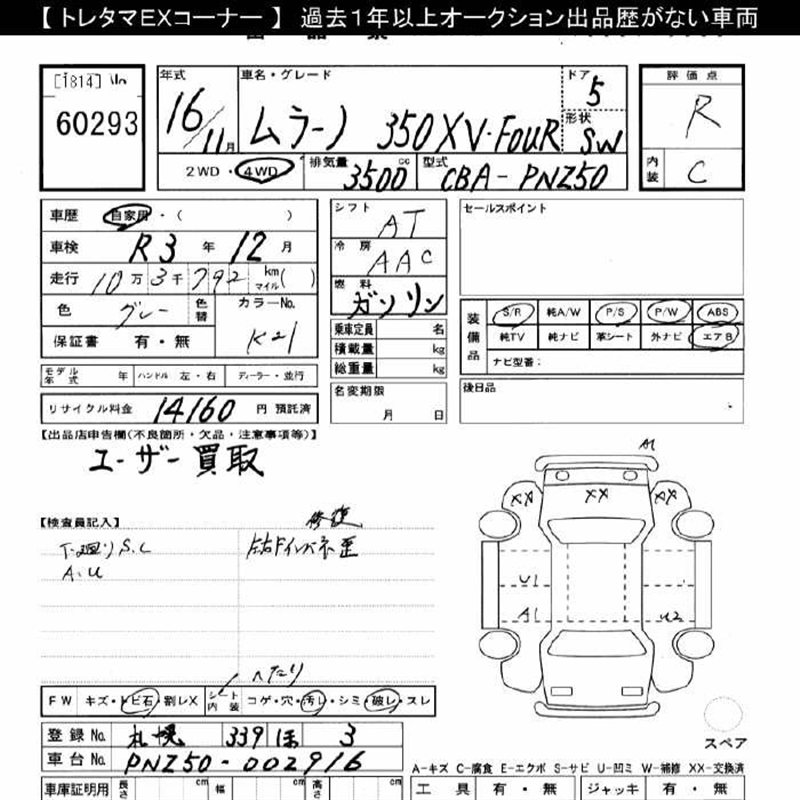 【トレタマEXコーナー】 過去1年以上オークション出品歴がない車両
[1814]
60293
年式 16/11月
車名・グレード ムラーノ 350XV・FOUR
ドア 5
形状 SW
評価点 R
内装 C
2WD・4WD
排気量 3500 cc
型式 CBA-PNZ50
車歴 自家用・( )
車検 R3年 12月
走行 10万3千792 km マイル( )
色 グレー 色替
カラーNo. K21
保証書 有・無
シフト AT
冷房 AAC
燃料 ガソリン
乗車定員 名
積載量 kg
総重量 kg
セールスポイント
装備品 S/R 純A/W P/S P/W ABS
純TV 純ナビ 革シート 外ナビ エアB
ナビ型番:
モデル年式 年 ハンドル 左・右 ディーラー・並行
名変期限 月 日
後日品
リサイクル料金 14160 円 預託済
【出品店申告欄(不良箇所・欠品・注意事項等)】
ユーザー買取
【検査員記入】
修復
下廻りS.C
A.U
左右Fインパネ歪
A1
XX XX XX
U1
A1 U2
へたり
FW キズ・トビ石・割レX シート内装 コゲ・穴・汚レ・シミ・破レ・スレ
スペア
登録No. 札幌 339 ほ 3
車台No. PNZ50-002916
A-キズ C-腐食 E-エクボ S-サビ U-凹ミ W-補修 XX-交換済
車庫証明用 長さ cm 幅 cm 高さ cm
工具 有・無 ジャッキ 有・無